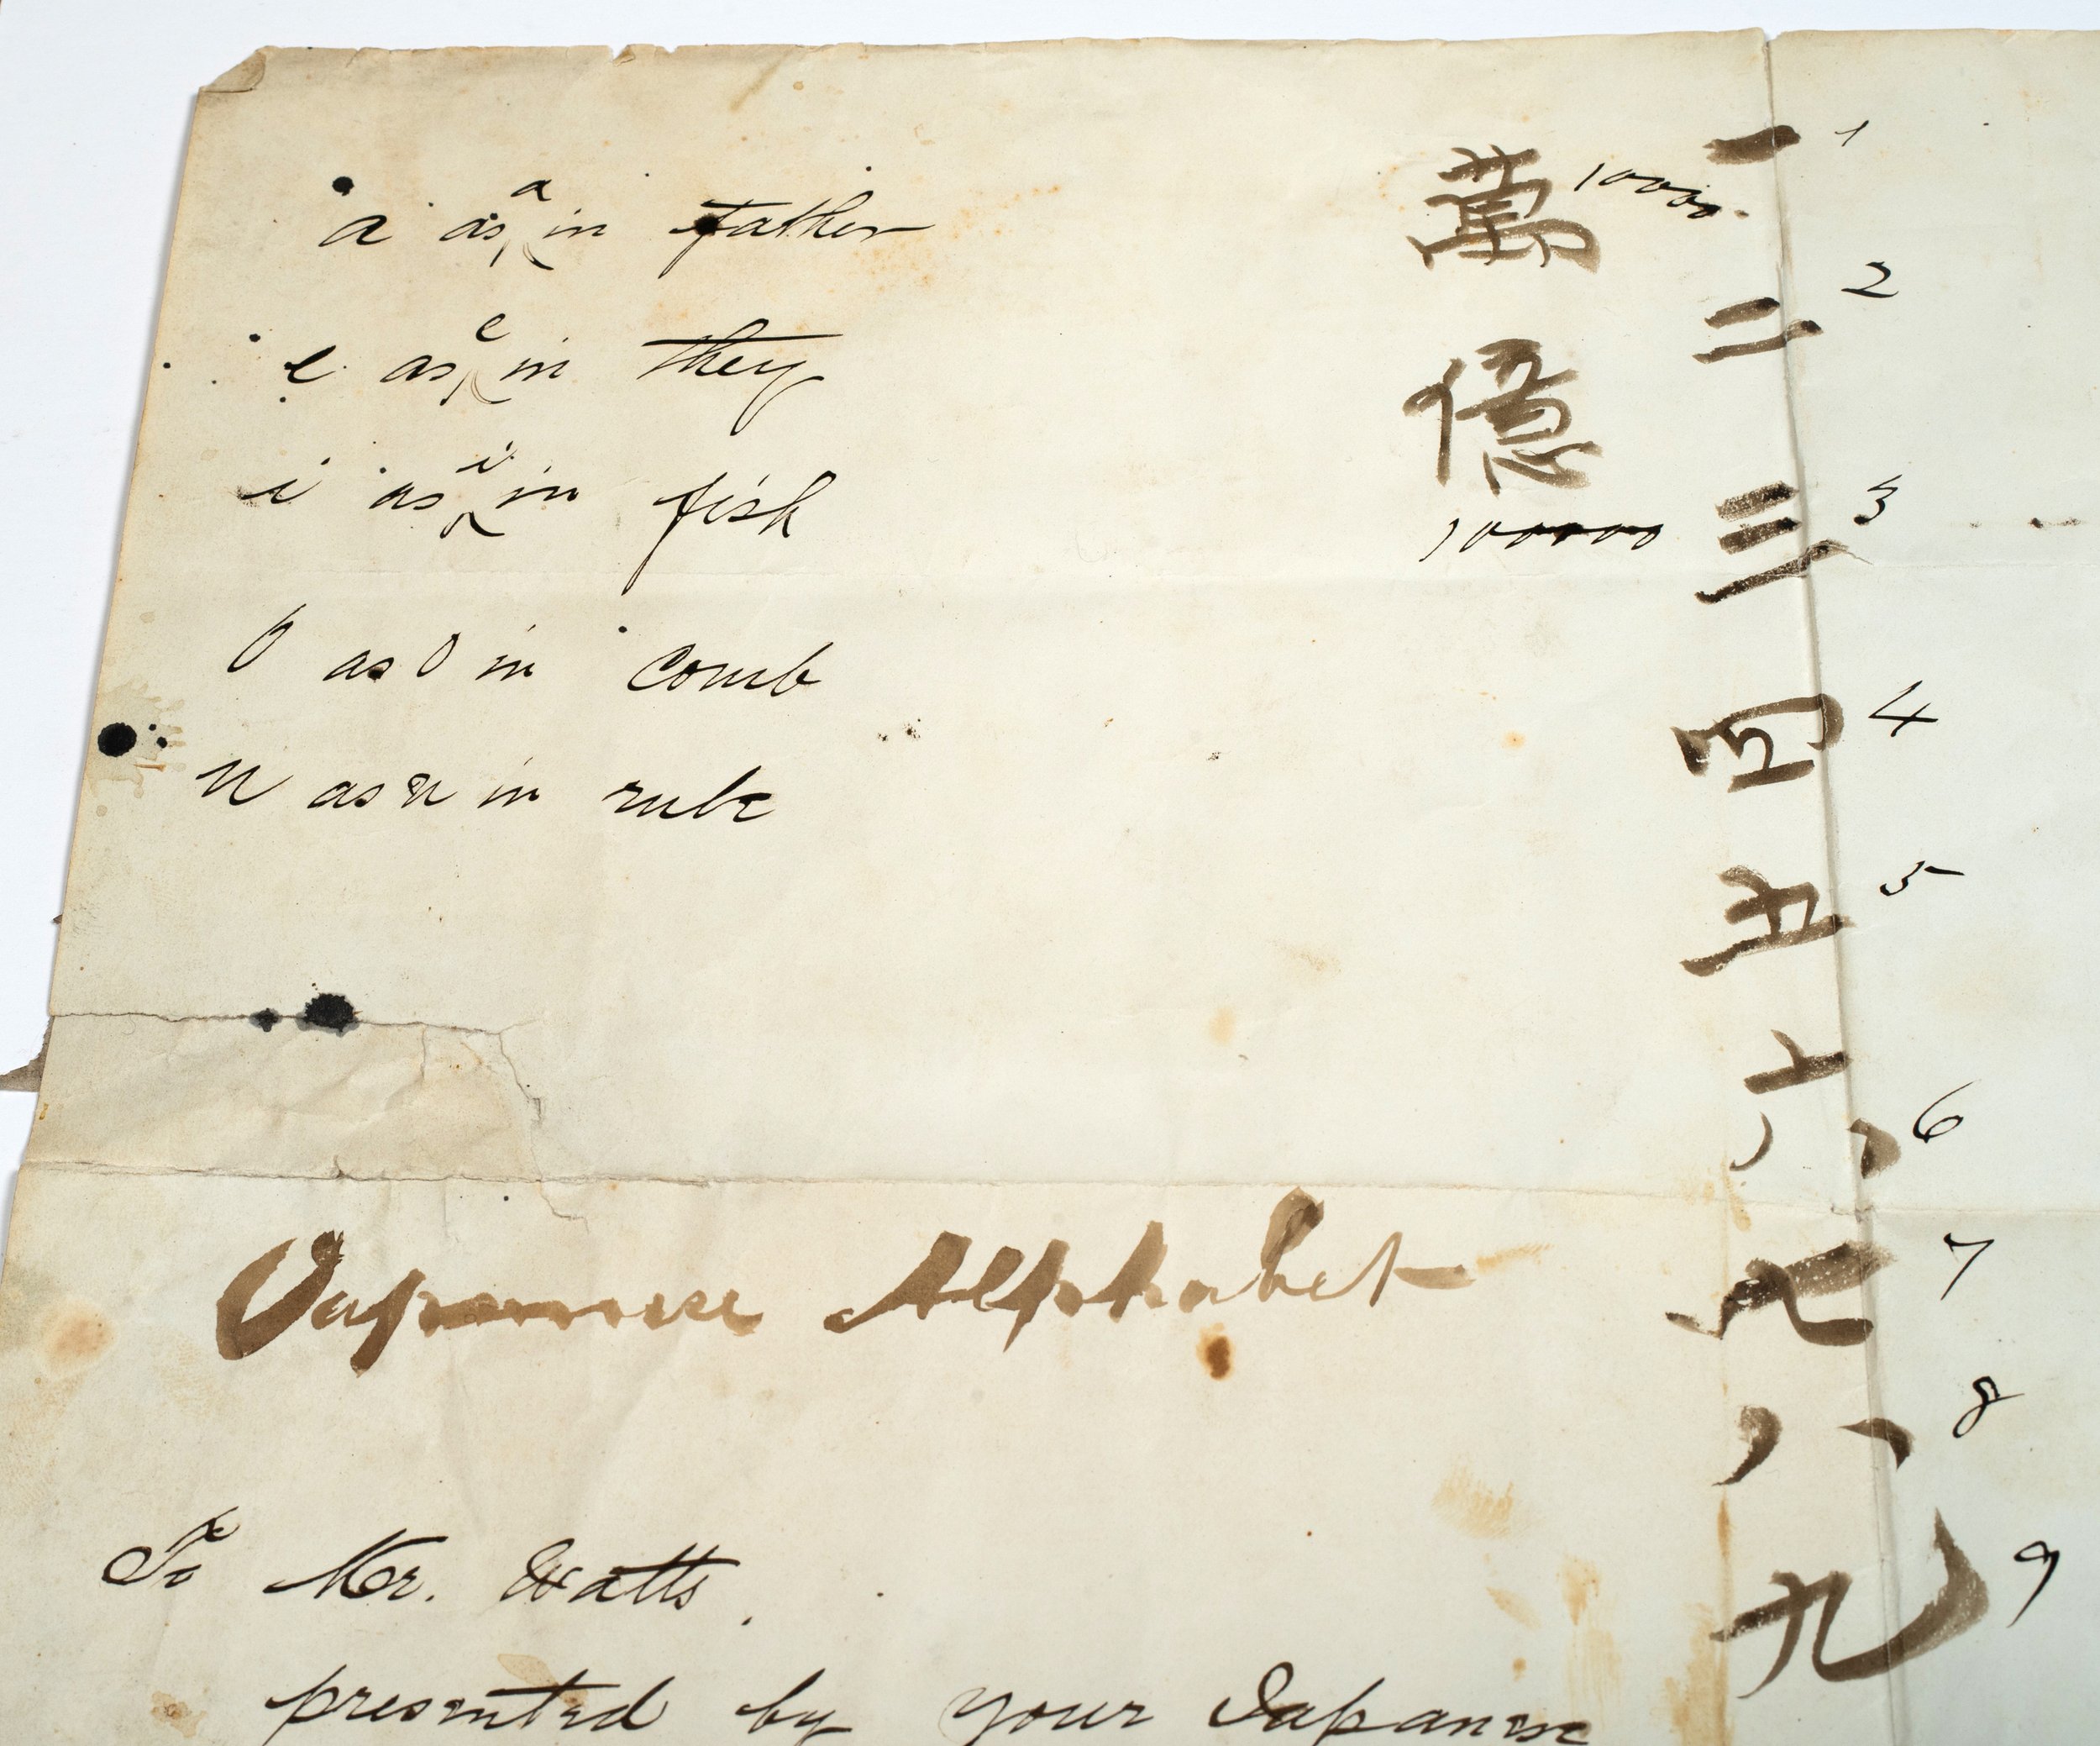 a as a in father
e as e in they
i as i in fish
O as O in comb
u as u in rube
Japanese Alphabet
To Mr. Watts.
presented by your Japanese
萬 10000.
億
100000
一 1
二 2
三 3
四 4
五 5
六 6
七 7
八 8
九 9